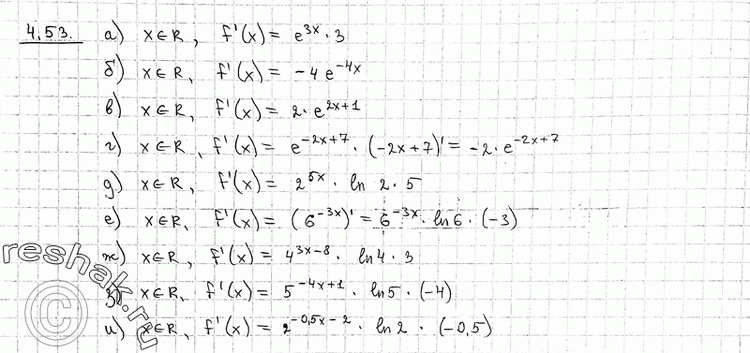 4.53. а) x∈R, f'(x) = e^{3x} · 3
б) x∈R, f'(x) = -4 e^{-4x}
в) x∈R, f'(x) = 2 · e^{2x+1}
г) x∈R, f'(x) = e^{-2x+7} · (-2x+7)' = -2 · e^{-2x+7}
д) x∈R, f'(x) = 2^{5x} · ln 2 · 5
е) x∈R, f'(x) = (6^{-3x})' = 6^{-3x} · ln6 · (-3)
ж) x∈R, f'(x) = 4^{3x-8} · ln4 · 3
з) x∈R, f'(x) = 5^{-4x+1} · ln5 · (-4)
и) x∈R, f'(x) = 2^{-0,5x-2} · ln2 · (-0,5)
reshak.ru
©